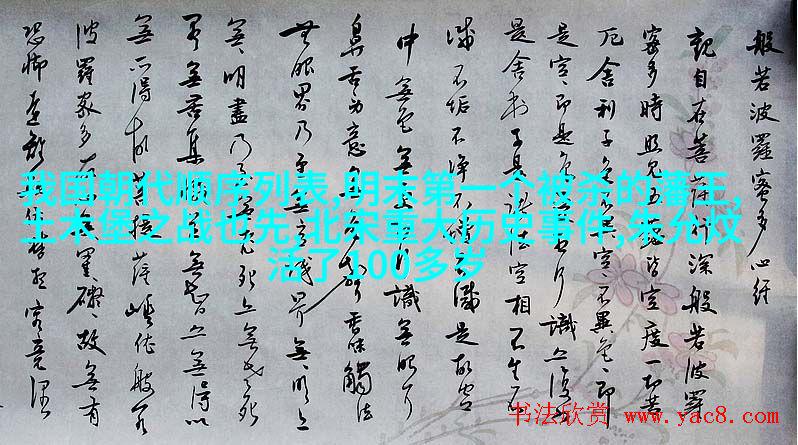 般若波羅蜜多心経
觀自在菩薩行深般若波羅
蜜多時照見五蘊皆空度一切苦
厄舍利子色不異空空不異色色即
是空空即是色受想行識亦復如
是舍利子是諸法空相不生不
滅不垢不淨不增不減是故空
中無色無受想行識無眼耳
鼻舌身意無色聲香味觸法
無眼界乃至無意識界無無明亦
無無明盡乃至無老死亦無老死
盡無苦集滅道無智亦無得以
無所得故菩提薩埵依般若
波羅蜜多故心無罣礙故無有
恐怖遠離顛倒夢想究竟涅
我国朝代顺序列表,明末第一个被杀的藩王,
土木堡之战也先,北宋重大历史事件,朱允炆
活了100多岁
书法欣赏 www.yac8.com